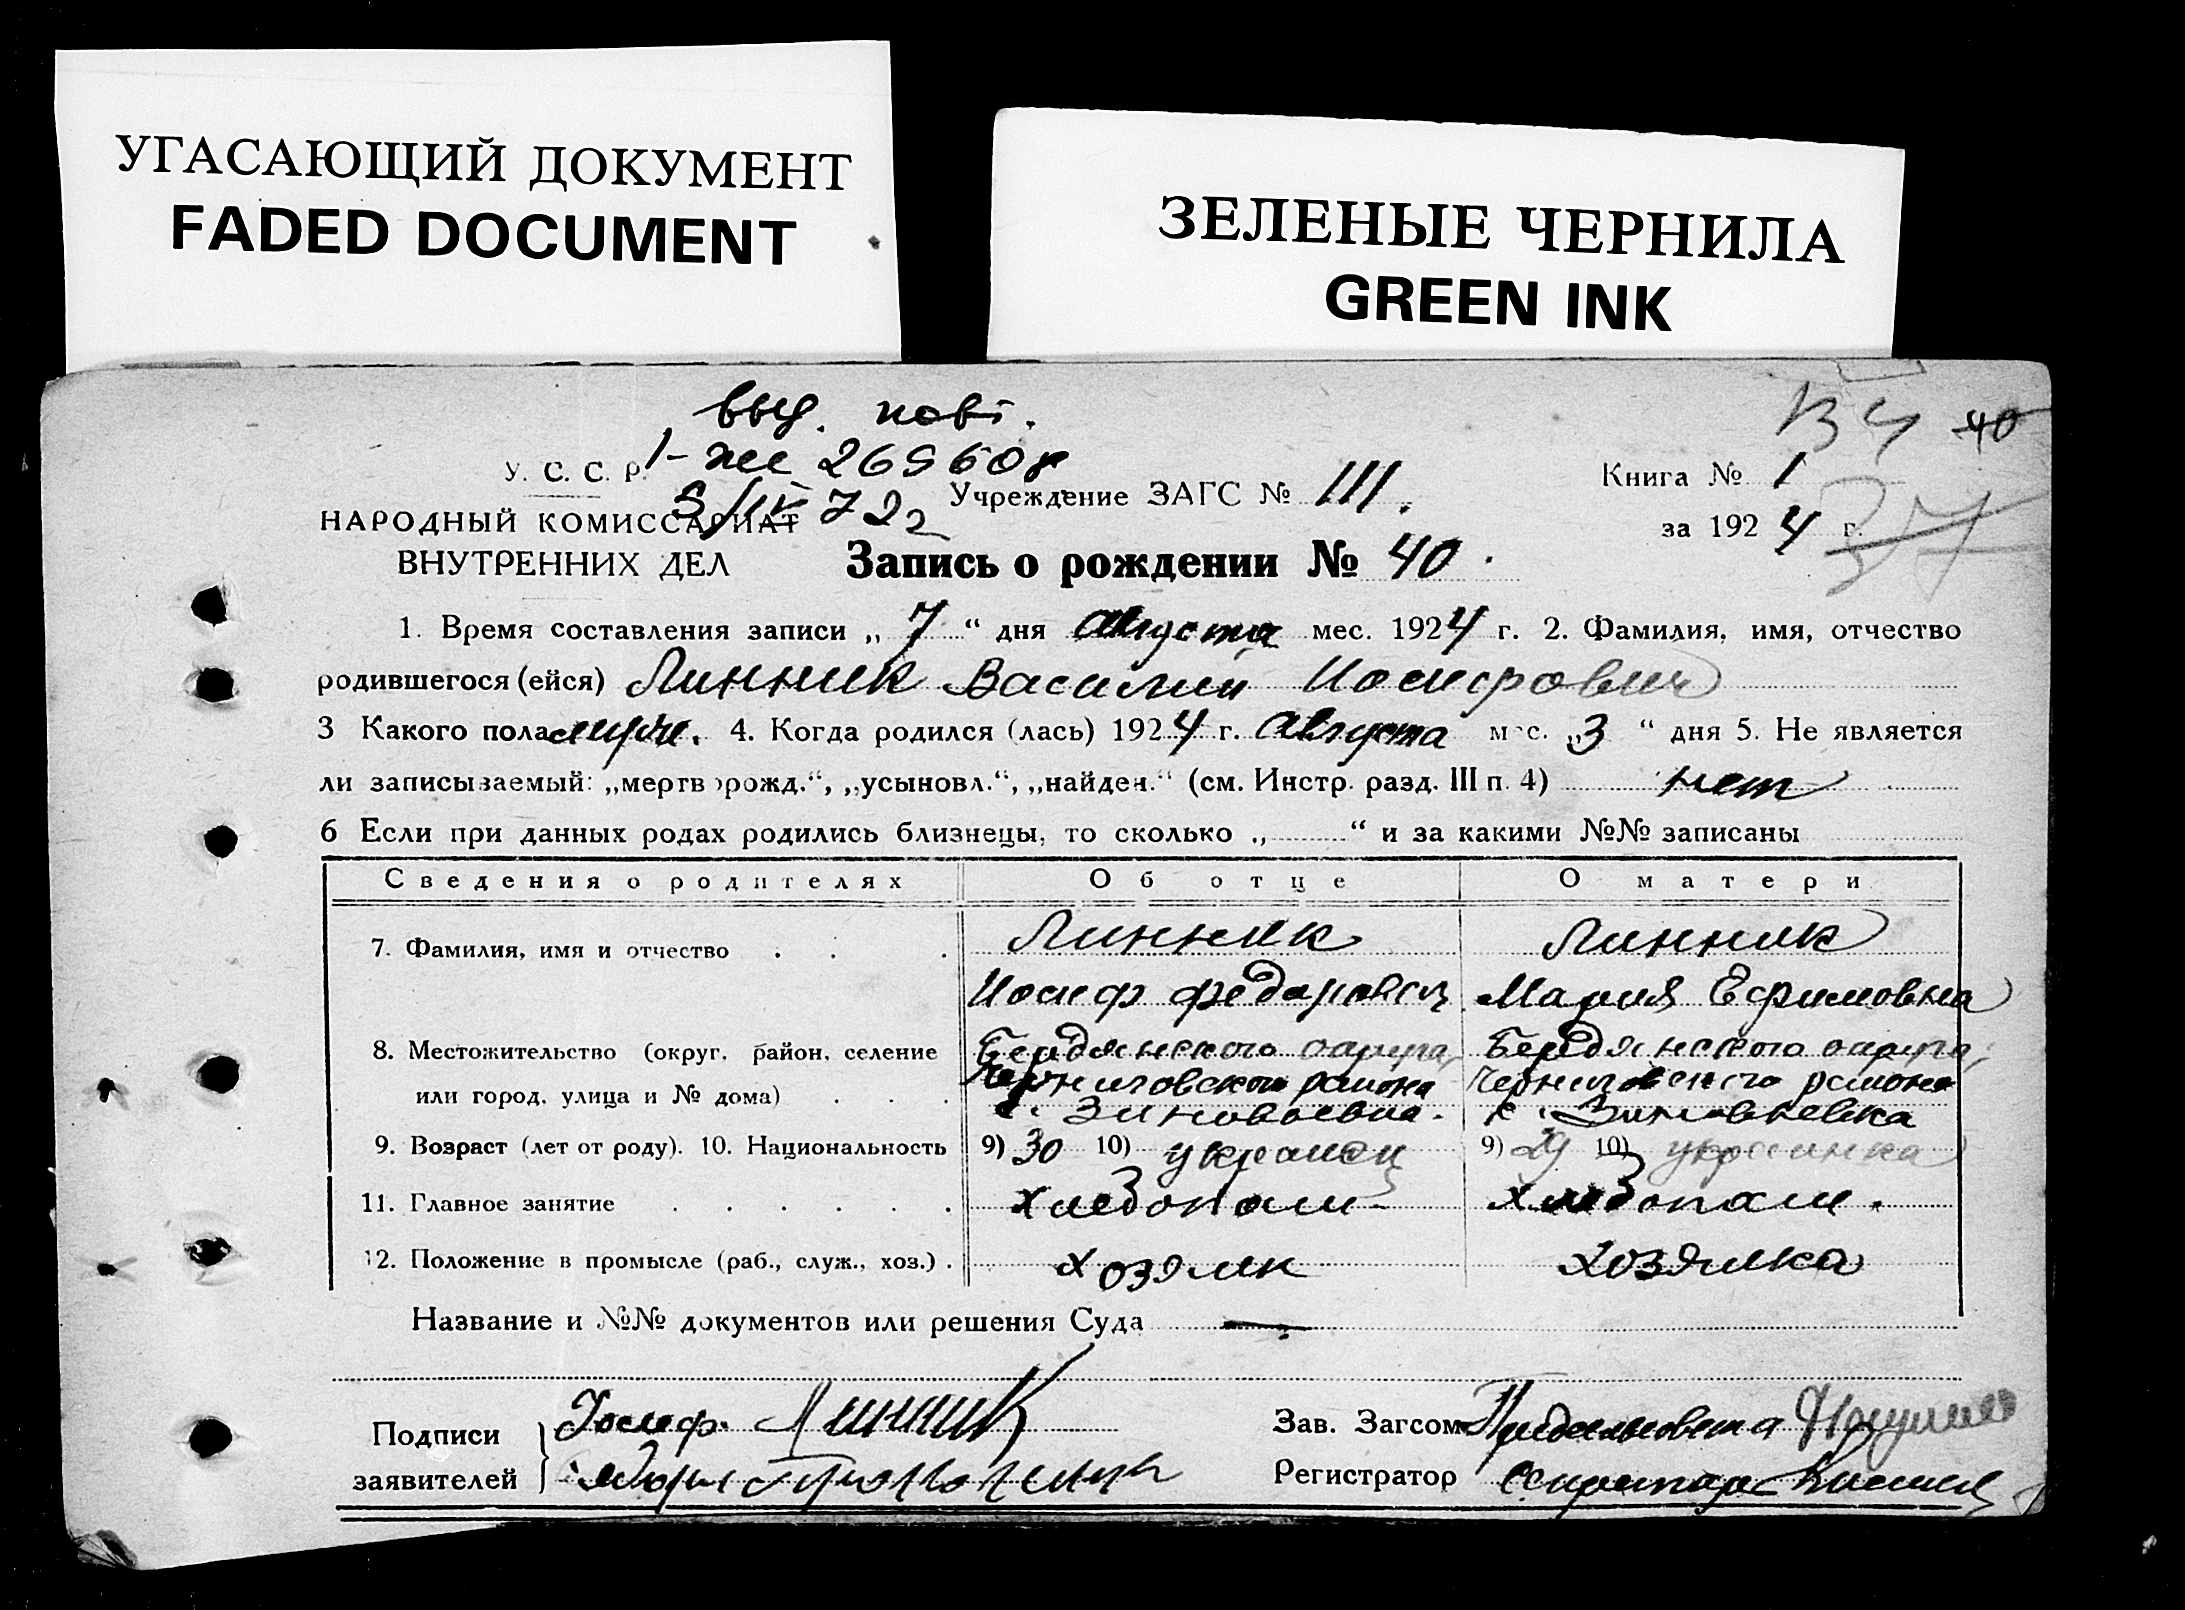 УГАСАЮЩИЙ ДОКУМЕНТ
FADED DOCUMENT
ЗЕЛЕНЫЕ ЧЕРНИЛА
GREEN INK
выд. повт.
40
У. С. С. Р. 1-же 269608
Книга № 1
Учреждение ЗАГС № III.
5/IV 72
за 1924 г.
НАРОДНЫЙ КОМИССАРИАТ
ВНУТРЕННИХ ДЕЛ
Запись о рождении № 40.
1. Время составления записи „ 7 “ дня Августа мес. 1924 г. 2. Фамилия, имя, отчество
родившегося (ейся) Линник Василий Иосифович
3 Какого пола муж. 4. Когда родился (лась) 1924 г. Августа мес. „3 “ дня 5. Не является
ли записываемый: „мертворожд.“, „усыновл.“, „найден.“ (см. Инстр. разд. III п. 4) нет
6 Если при данных родах родились близнецы, то сколько „ “ и за какими №№ записаны
Сведения о родителях Об отце О матери
7. Фамилия, имя и отчество Линник Линник
Иосиф Федорович Мария Ефимовна
8. Местожительство (округ, район, селение Бердянского округа, Бердянского округа,
или город, улица и № дома) Черниговского района Черниговского района
с. Зиновьевка. с. Зиновьевка
9. Возраст (лет от роду). 10. Национальность 9) 30 10) украинец 9) 29 10) украинка
11. Главное занятие хлебопаш. хлебопаш.
12. Положение в промысле (раб., служ., хоз.) хозяин хозяйка
Название и №№ документов или решения Суда —
Подписи Иосиф Линник
заявителей
Зав. Загсом Предсельсовета
Регистратор Секретарь